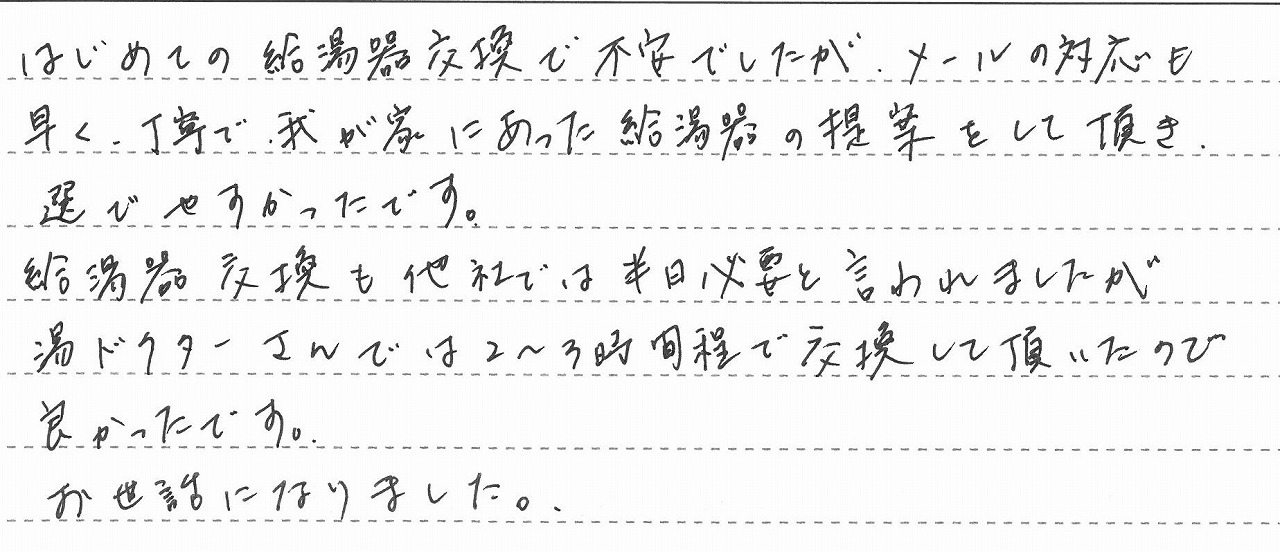 はじめての給湯器交換で不安でしたが、メールの対応も
早く、丁寧で、我が家にあった給湯器の提案をして頂き、
選びやすかったです。
給湯器交換も他社では半日必要と言われましたが
湯ドクターさんでは2〜3時間程で交換して頂いたので
良かったです。
お世話になりました。